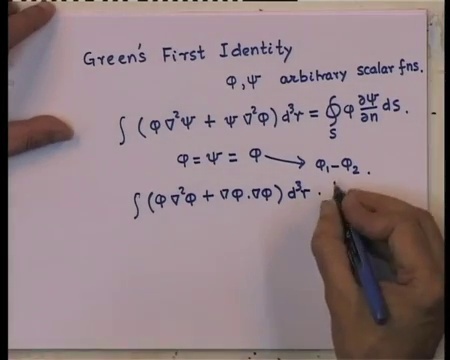 Green's First Identity
φ, ψ arbitrary scalar fns.
∫ (φ ∇²ψ + ψ ∇²φ) d³r = ∮_S φ ∂ψ/∂n dS.
φ = ψ = φ ⟶ φ₁ - φ₂.
∫ (φ ∇²φ + ∇φ . ∇φ) d³r .